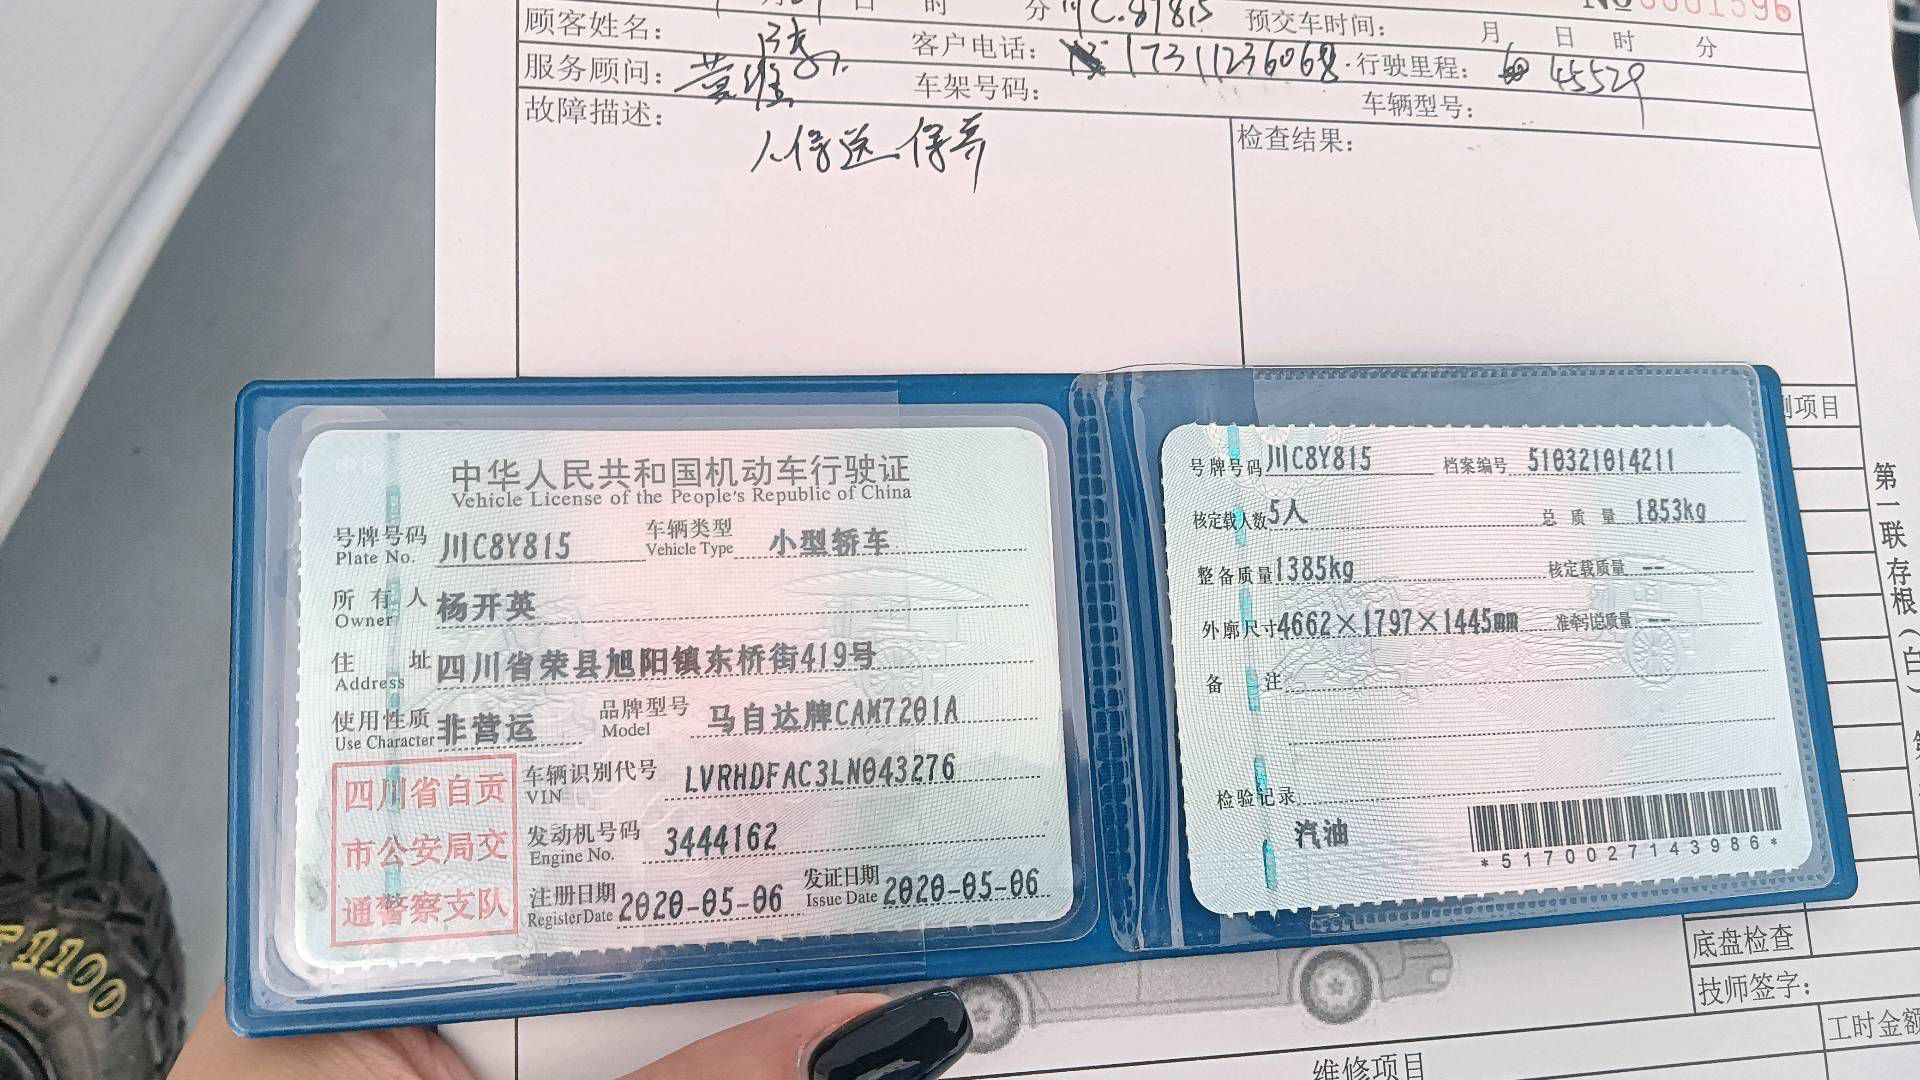 No 0001596
月 日 时 分 川C.8Y815 预交车时间： 月 日 时 分
顾客姓名： 客户电话： 17311236068 行驶里程： 45529
服务顾问： 车架号码： 车辆型号：
故障描述： 检查结果：
保养
测项目
中华人民共和国机动车行驶证
Vehicle License of the People's Republic of China
号牌号码 川C8Y815 车辆类型 小型轿车
Plate No. Vehicle Type
所有人 杨开英
Owner
住址 四川省荣县旭阳镇东桥街419号
Address
使用性质 非营运 品牌型号 马自达牌CAM7201A
Use Character Model
四川省自贡
市公安局交
通警察支队
车辆识别代号 LVRHDFAC3LN043276
VIN
发动机号码 3444162
Engine No.
注册日期 2020-05-06 发证日期 2020-05-06
Register Date Issue Date
号牌号码 川C8Y815 档案编号 510321014211
核定载人数 5人 总质量 1853kg
整备质量 1385kg 核定载质量 --
外廓尺寸 4662×1797×1445mm 准牵引总质量 --
备注
检验记录
汽油
*5170027143986*
第一联存根（白）
底盘检查
技师签字：
工时金额
维修项目
1100